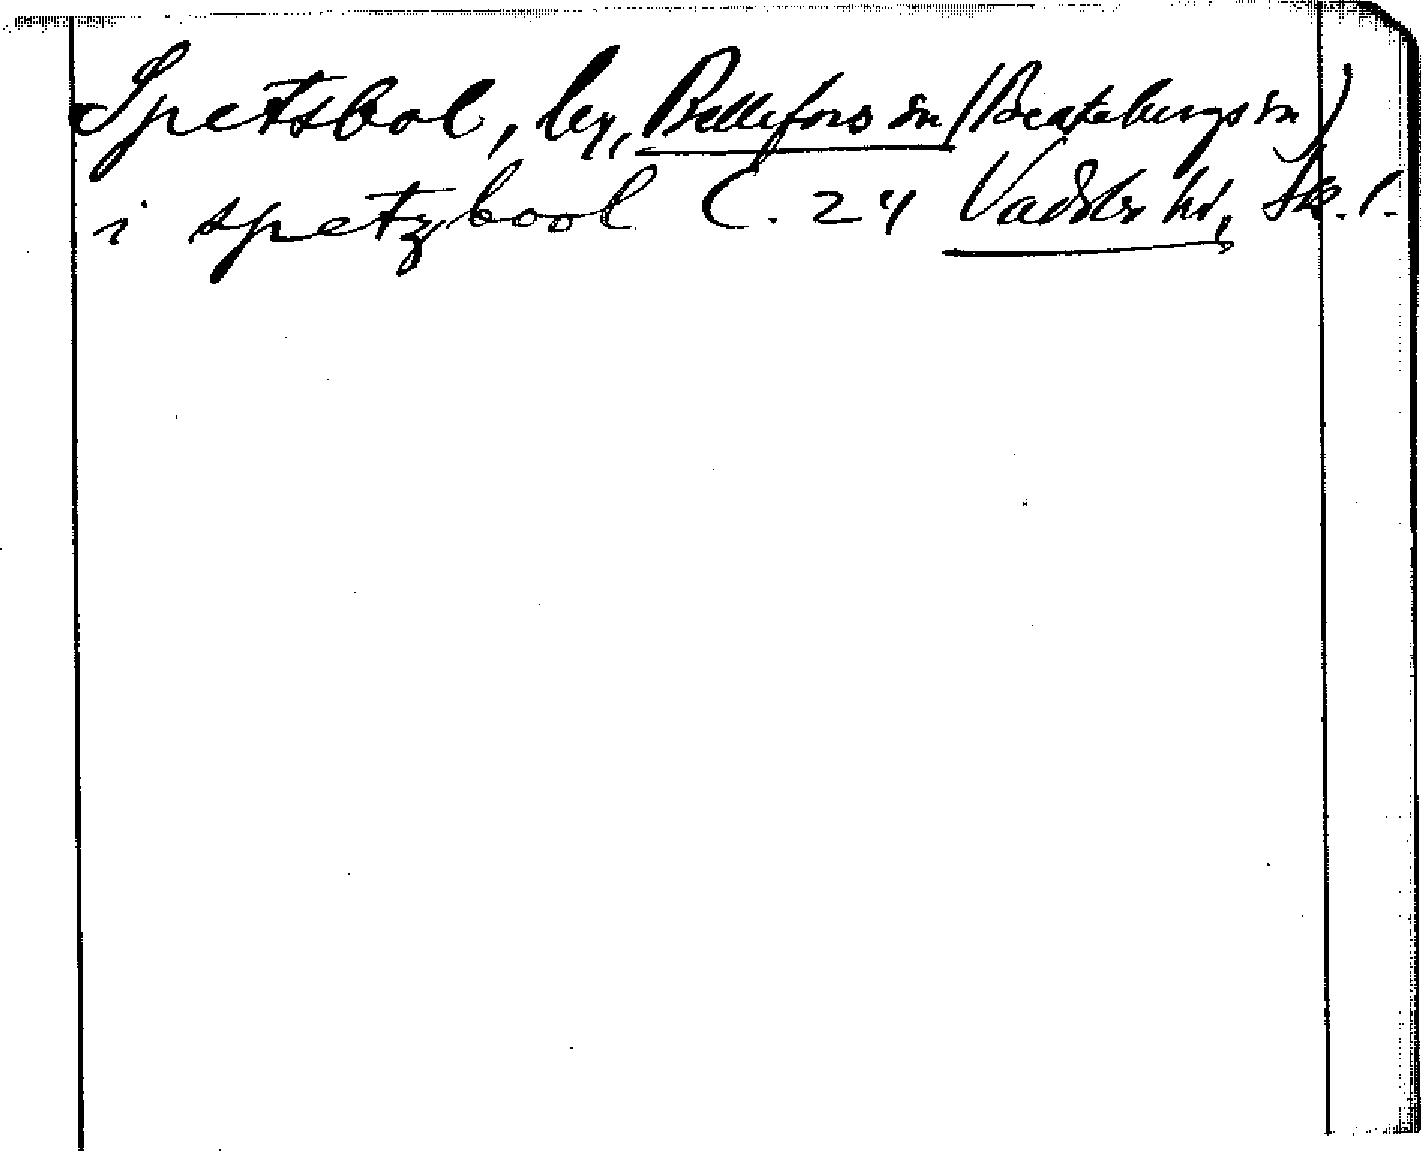 Spetsbol, by, Bellefors sn (Beatebergs sn)
i spetzbool C. 24 Vadsbo hd, Sk. l.